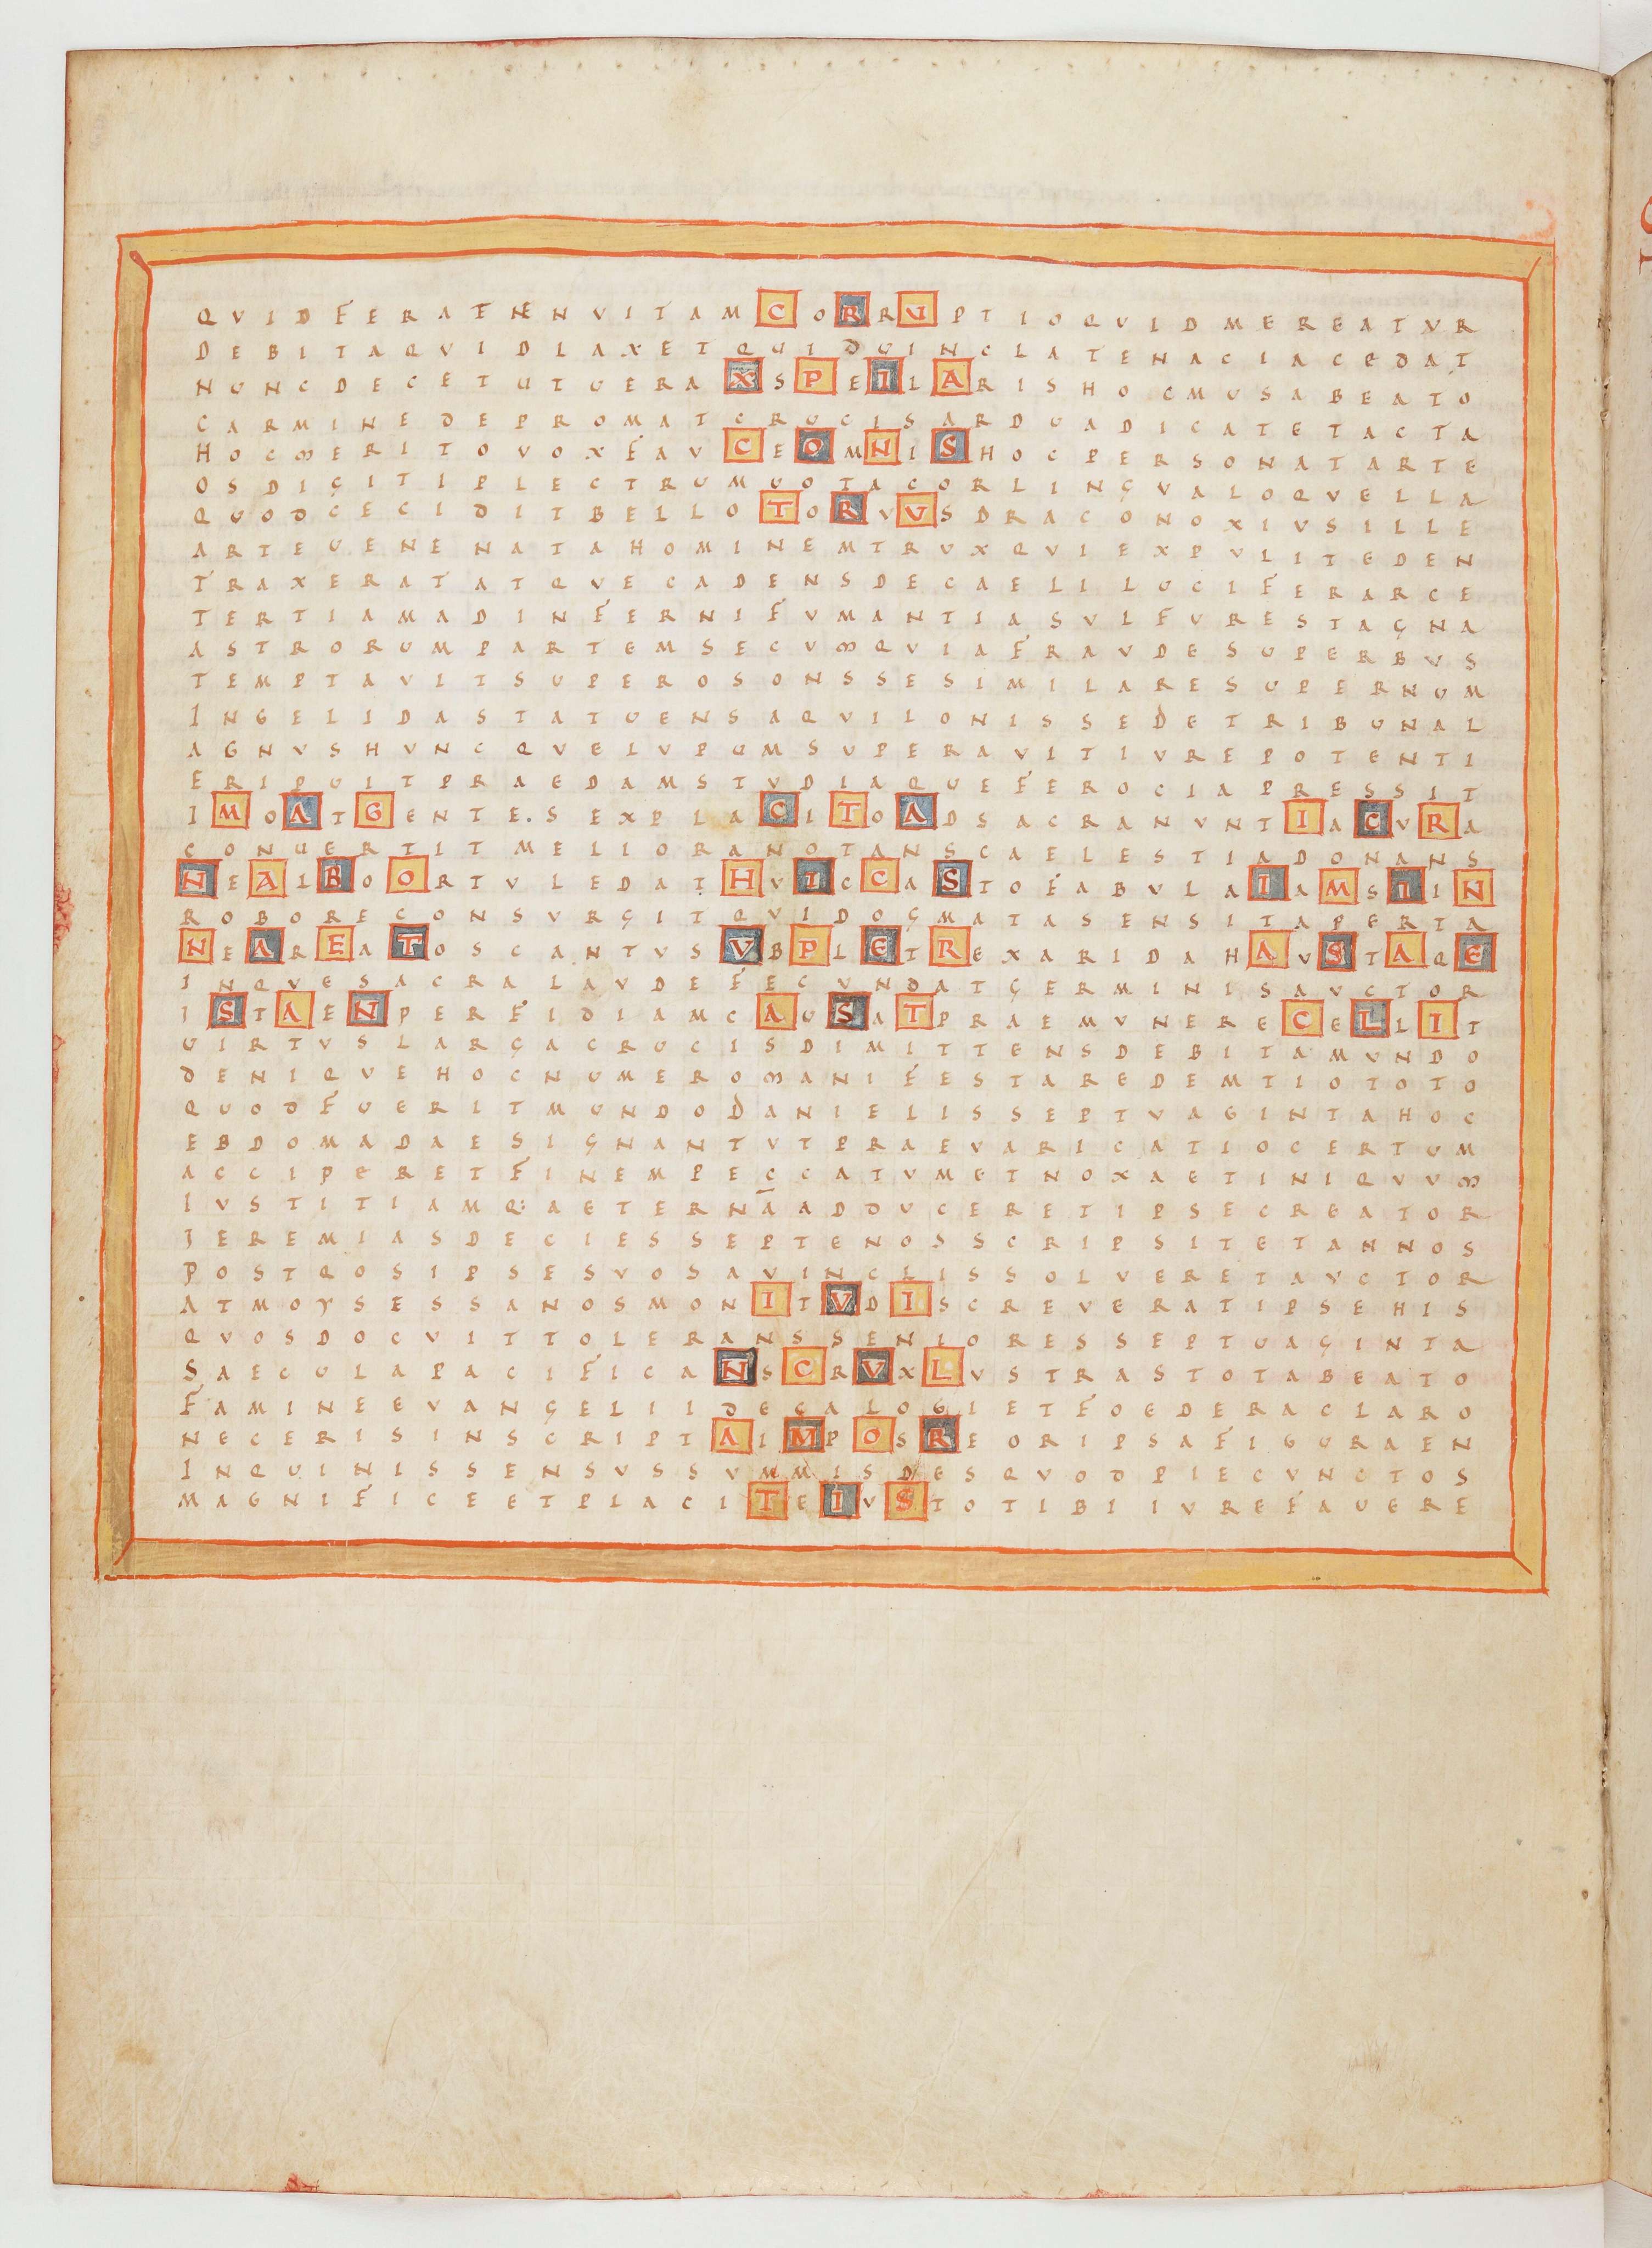 QVIDFERATENVITAMCORRUPTIOQVIDMEREATVR
DEBITAQVIDLAXETQUIDUINCLATENACIACEDAT
NUNCDECETUTUERAXSPEILARISHOCMUSABEATO
CARMINEDEPROMATCRUCISARDUADICATETACTA
HOCMERITOVOXFAVCEOMNISHOCPERSONATARTE
OSDIGITIPLECTRUMUOTACORLINGVALOQVELLA
QUODCECIDITBELLOTORVUSDRACONOXIVSILLE
ARTEUENENATAHOMINEMTRVXQVIEXPVLITEDEN
TRAXERATATQVECADENSDECAELILUCIFERARCE
TERTIAMADINFERNIFVMANTIASVLFURESTAGNA
ASTRORUMPARTEMSECVMQVIAFRAVDESUPERBVS
TEMPTAVITSUPEROSONSSESIMILARESUPERNUM
INGELIDASTATUENSAQVILONISSEDETRIBUNAL
AGNVSHVNCQVELVPUMSUPERAVITIVREPOTENTI
ERIPUITPRAEDAMSTVDIAQUEFEROCIAPRESSIT
IMOATGENTE.SEXPLACITOADSACRANVNTIACVRA
CONUERTITMELIORANOTANSCAELESTIADONANS
NEALBOORTVLEDATHVICCASTOFABVLAIAMSIIN
ROBORECONSVRGITQVIDOGMATASENSITAPERTA
NEAREATOSCANTVSVBPLETREXARIDAHAVSTAQE
INQVESACRALAVDEFECVNDATGERMINISAVCTOR
ISTAENPERFIDIAMCAUSATPRAEMVNERECELLIT
UIRTVSLARGACRUCISDIMITTENSDEBITAMVNDO
DENIQVEHOCNUMEROMANIFESTAREDEMTIOTOTO
QUODFUERITMUNDODANIELISSEPTVAGINTAHOC
EBDOMADAESIGNANTVTPRAEVARICATIOCERTUM
ACCIPERETFINEMPECCATVMETNOXAETINIQVVM
IVSTITIAMQ:AETERNĀADDUCERETIPSECREATOR
IEREMIASDECIESSEPTENOSSCRIPSITETANNOS
POSTQOSIPSESVOSAVINCLISSOLVERETAVCTOR
ATMOYSESSANOSMONITVDISCREVERATIPSEHIS
QVOSDOCVITTOLERANSSENIORESSEPTUAGINTA
SAECULAPACIFICANSCRVXLVSTRASTOTABEATO
FAMINEEVANGELIIDECALOGIETFOEDERACLARO
NECERISINSCRIPTAIMPOSREORIPSAFIGURAEN
INQUINISSENSVSSVMMISDESQVODPIECVNCTOS
MAGNIFICEETPLACITEIVSTOTIBIIVREFAVERE